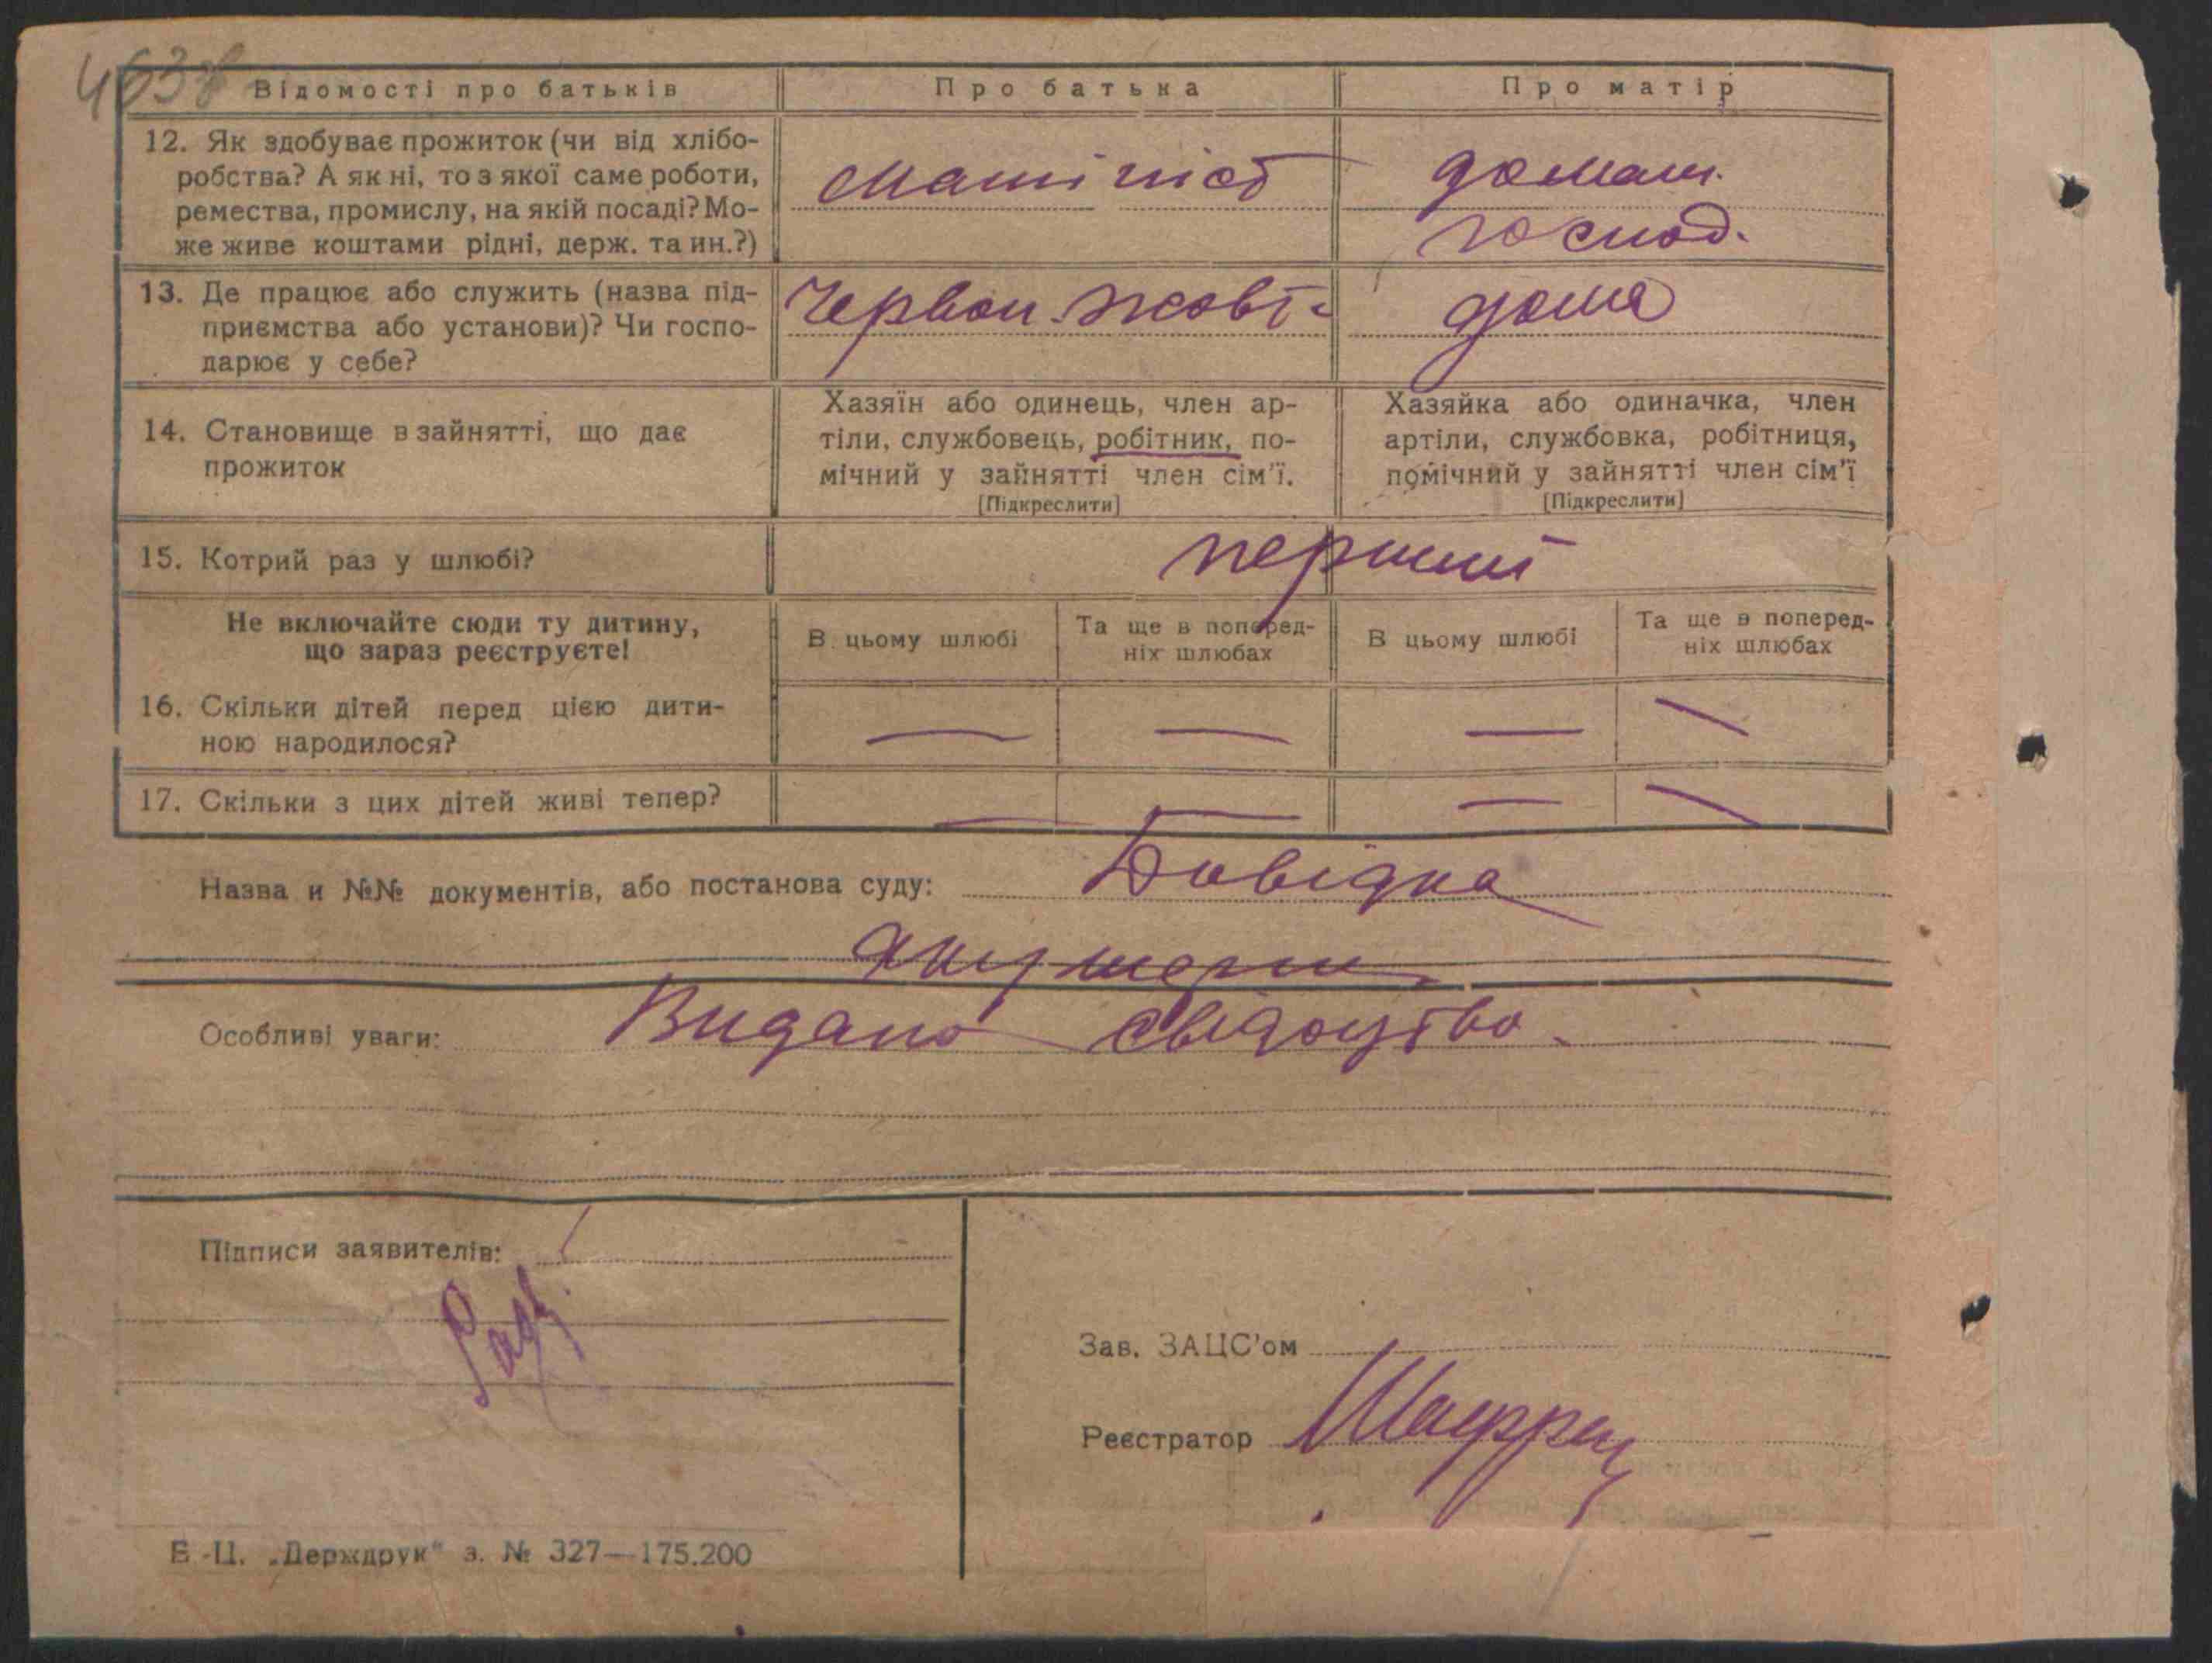 463 зв
Відомості про батьків
Про батька
Про матір
12. Як здобуває прожиток (чи від хлібо-
робства? А як ні, то з якої саме роботи,
ремества, промислу, на якій посаді? Мо-
же живе коштами рідні, держ. та ин.?)
машініст
домаш.
господ.
13. Де працює або служить (назва під-
приємства або установи)? Чи госпо-
дарює у себе?
Червон. Жовт-
дома
14. Становище в зайнятті, що дає
прожиток
Хазяїн або одинець, член ар-
тіли, службовець, робітник, по-
мічний у зайнятті член сім'ї.
[Підкреслити]
Хазяйка або одиначка, член
артіли, службовка, робітниця,
помічний у зайнятті член сім'ї
[Підкреслити]
15. Котрий раз у шлюбі?
перший
Не включайте сюди ту дитину,
що зараз реєструєте!
В цьому шлюбі
Та ще в поперед-
ніх шлюбах
В цьому шлюбі
Та ще в поперед-
ніх шлюбах
16. Скільки дітей перед цією дити-
ною народилося?
— — — —
17. Скільки з цих дітей живі тепер?
— — — —
Назва и №№ документів, або постанова суду: Довідка
акушерки
Особливі уваги: Видано свідоцтво.
Підписи заявителів:
Зав. ЗАЦС'ом
Реєстратор
Б.-Ц. „Держдрук" з. № 327—175.200